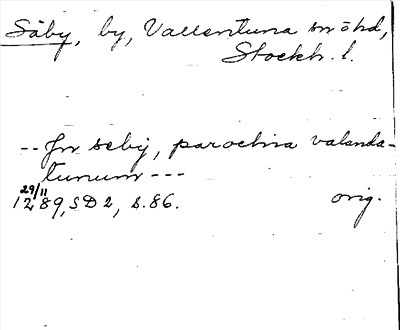 Säby, by, Vallentuna sn o hd,
Stockh. l.
-- Jn seby, parochia valanda-
tunum ---
29/11
1289, SD 2, s. 86. orig.